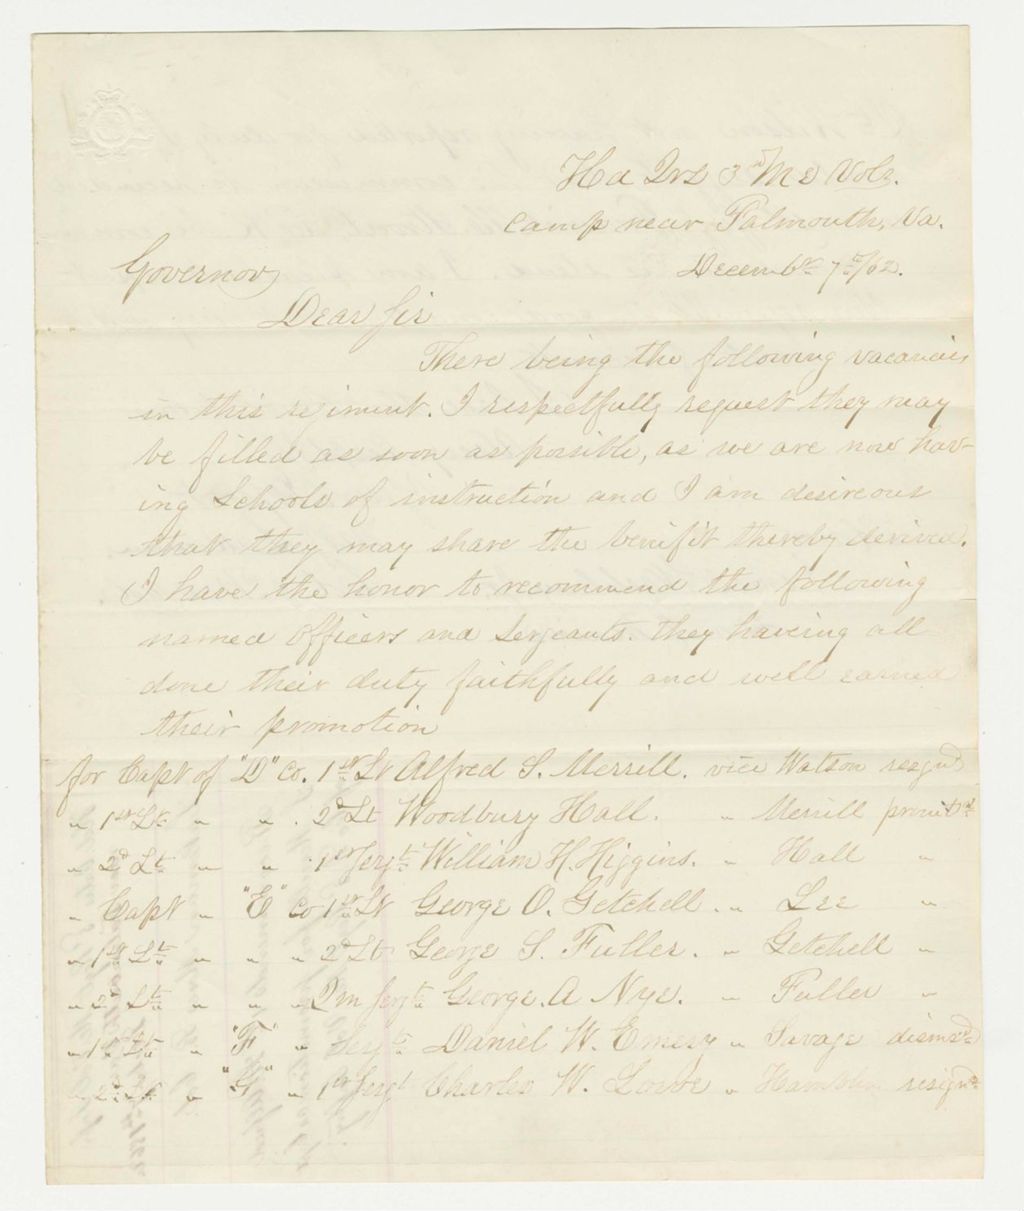 Hd Qrs 3rd Me Vols.
Camp near Falmouth, Va.
Decemb'r 7th/62.
Governor
Dear Sir
There being the following vacancies
in this regiment. I respectfully request they may
be filled as soon as possible, as we are now hav-
ing Schools of instruction and I am desireous
that they may share the benifit thereby derived.
I have the honor to recommend the following
named Officers and Sergeants. they haveing all
done their duty faithfully and well earned
their promotion
for Capt of "D" Co. 1st Lt Alfred S. Merrill. vice Watson resgnd
" 1st Lt. " " . 2d Lt Woodbury Hall. " Merrill promtd
" 2d Lt " " 1st Sergt William H. Higgins. " Hall "
" Capt " "E" Co 1st Lt George O. Getchell. " Lee "
" 1st Lt " " " 2d Lt George S. Fuller. " Getchell "
" 2d Lt " " " Qm Sergt George. A Nye. " Fuller "
" 1st Lt " "F" " Sergt Daniel W. Emery " Savage dismsd
" 2d Lt " "G" " 1st Sergt Charles W. Lowe " Hamblin resignd